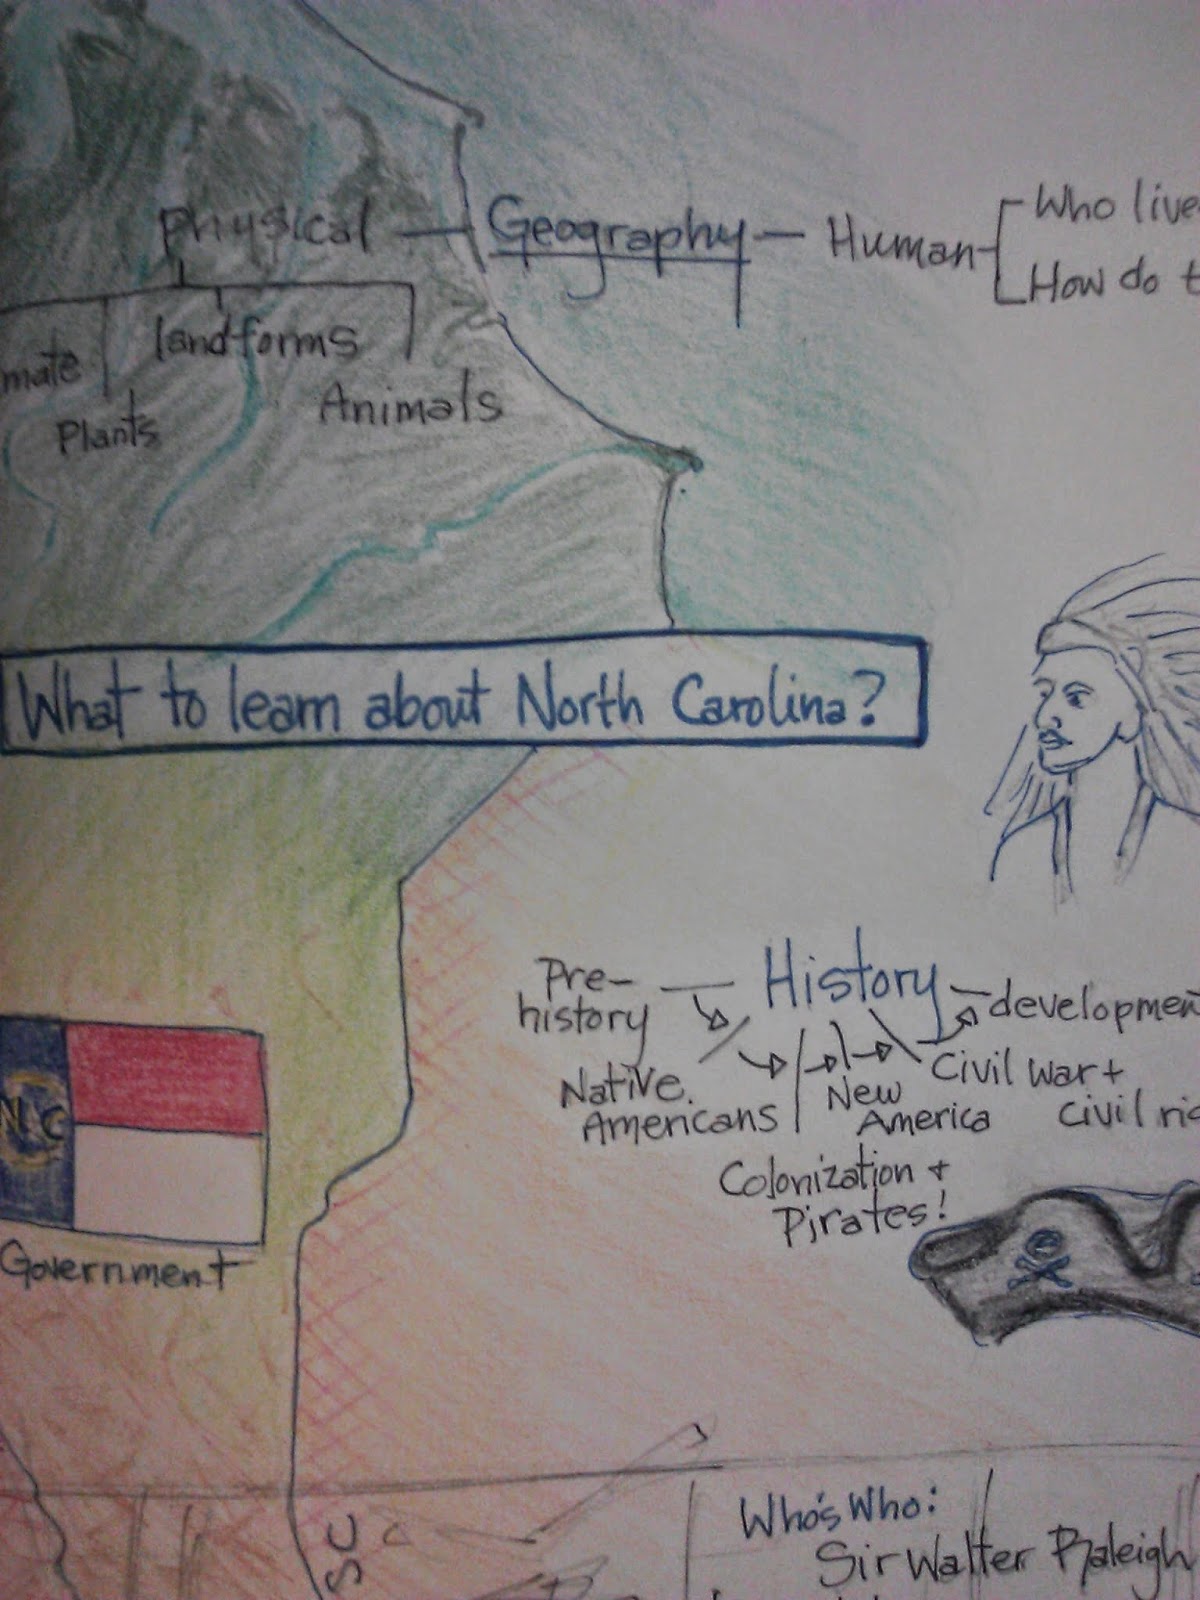 Physical — Geography — Human
Who live
How do t
mate
landforms
Plants
Animals
What to learn about North Carolina?
Pre-
history
History
development
Native
Americans
New
America
Civil War +
Civil rig
Colonization +
Pirates!
NC
Government
SC
Who's Who:
Sir Walter Raleigh